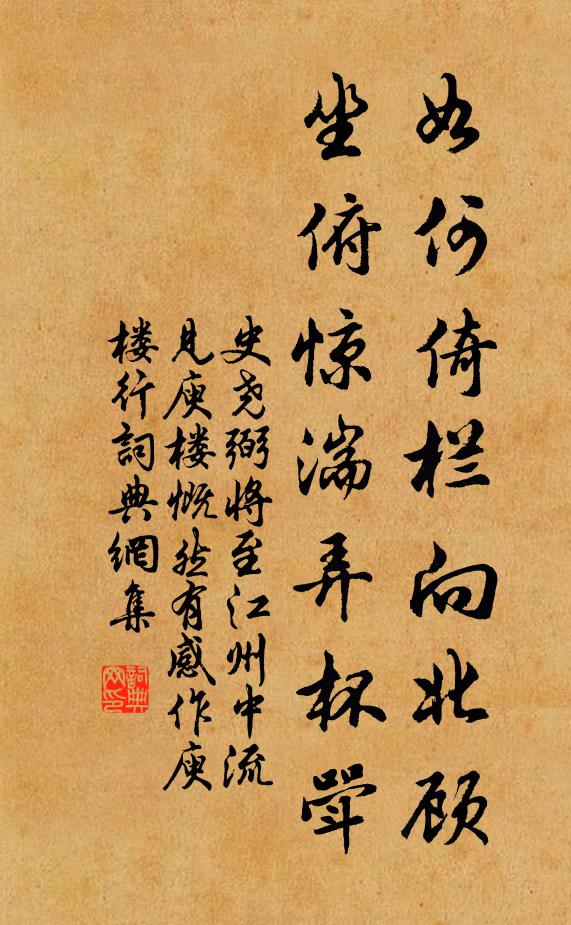 如何倚栏向北顾
坐俯惊湍弄杯斝
史尧弼将至江州中流
见庾楼慨然有感作庾
楼行詞典網集
詞典
网印